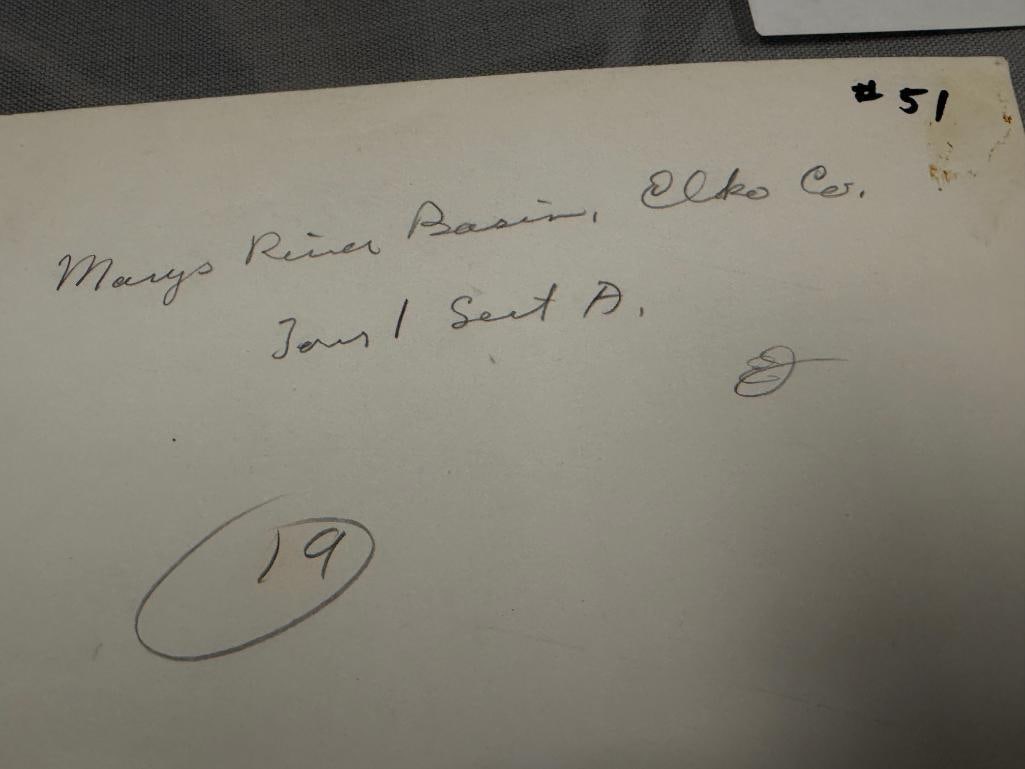 # 51
Marys River Basin, Elko Co.
Tour 1 Sect A.
19